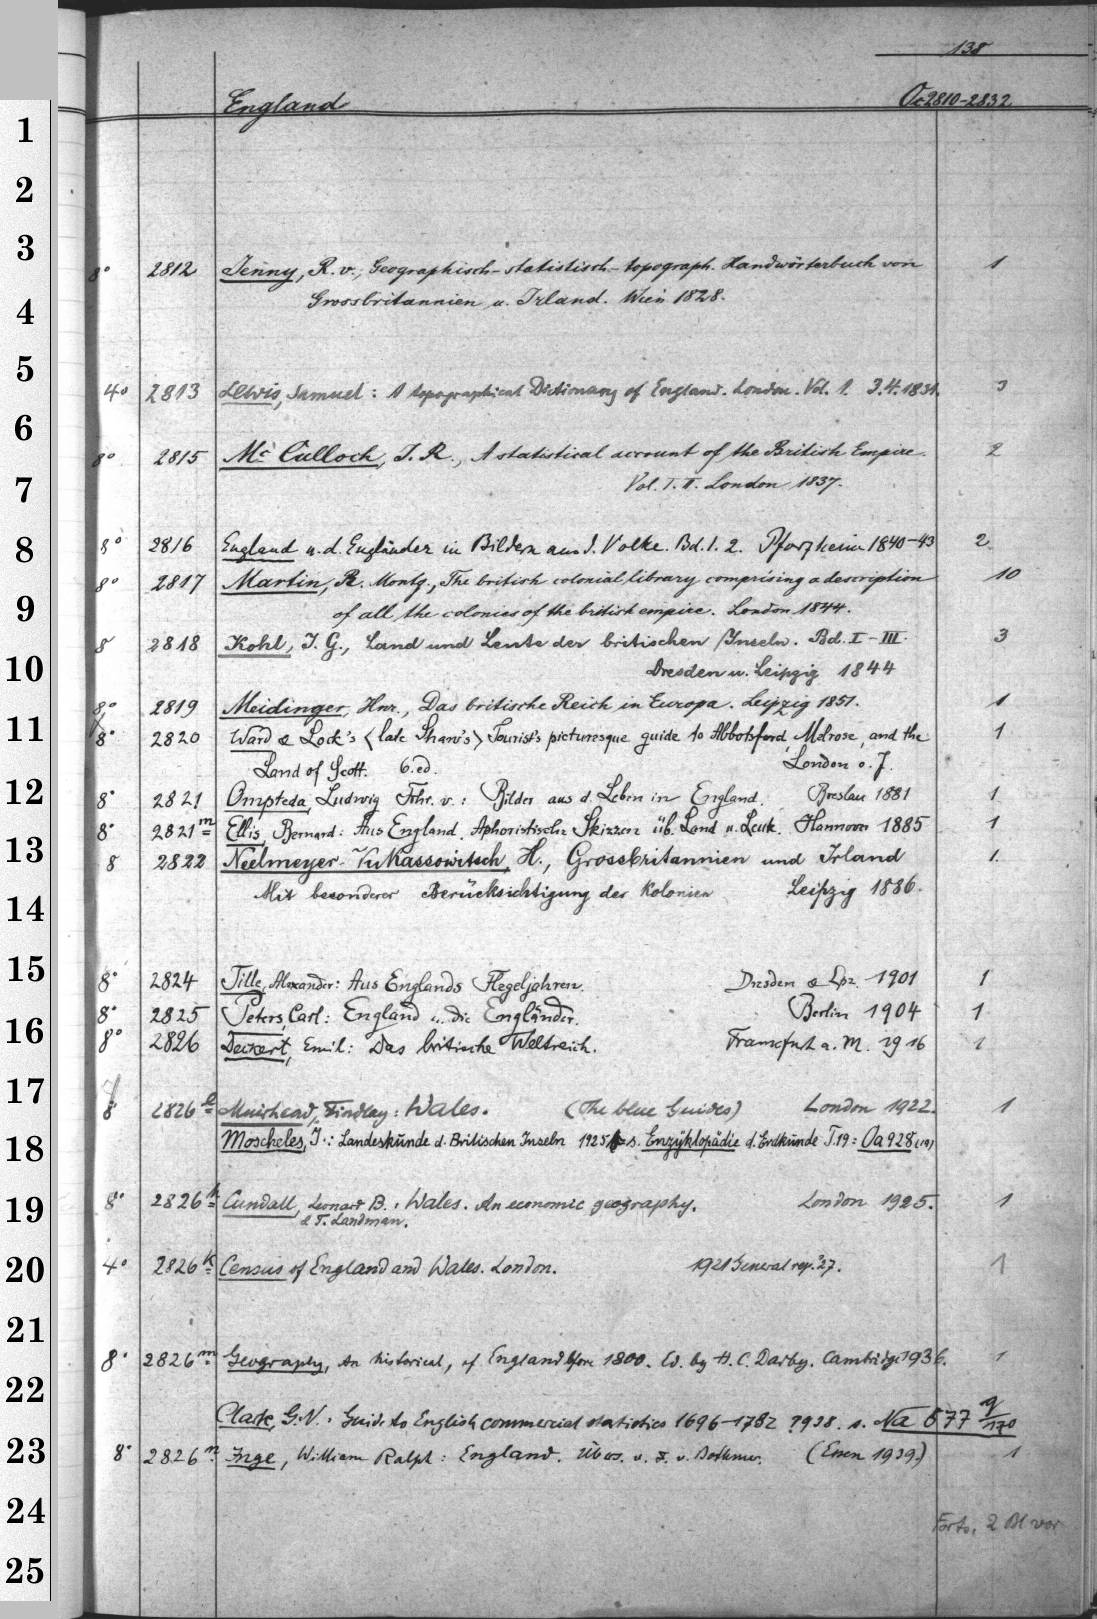 138
England Oc 2810-2832
1
2
3
8° 2812 Jenny, R. v., Geographisch-statistisch-topograph. Handwörterbuch von 1
Grossbritannien u. Irland. Wien 1828.
4
5
4° 2813 Lewis, Samuel: A topographical Dictionary of England. London. Vol. 1. 3.4. 1831. 3
6
8° 2815 Mc Culloch, J. R., A statistical account of the British Empire. 2
7
Vol. I. II. London 1837.
8
8° 2816 England u. d. Engländer in Bildern aus d. Volke. Bd. 1. 2. Pforzheim 1840-43 2
8° 2817 Martin, R. Montg., The british colonial library comprising a description 10
9
of all the colonies of the british empire. London 1844.
8 2818 Kohl, J. G., Land und Leute der britischen Inseln. Bd. I-III. 3
10
Dresden u. Leipzig 1844
8° 2819 Meidinger, Hnr., Das britische Reich in Europa. Leipzig 1851. 1
11
8° 2820 Ward & Lock's <late Shaw's> Tourist's picturesque guide to Abbotsford, Melrose, and the 1
Land of Scott. 6. ed. London o. J.
12
8° 2821 Ompteda, Ludwig Frhr. v.: Bilder aus d. Leben in England. Breslau 1881 1
8° 2821m Ellis, Bernard: Aus England. Aphoristische Skizzen üb. Land u. Leute. Hannover 1885 1
13
8 2822 Neelmeyer-Vukassowitsch, H., Grossbritannien und Irland 1.
Mit besonderer Berücksichtigung der Kolonien Leipzig 1886.
14
15
8° 2824 Tille, Alexander: Aus Englands Flegeljahren. Dresden & Lpz. 1901 1
8° 2825 Peters, Carl: England u. die Engländer. Berlin 1904 1
16
8° 2826 Deckert, Emil: Das britische Weltreich. Frankfurt a. M. 1916 1
17
8 2826e Muirhead, Findlay: Wales. (The blue Guides) London 1922. 1
18
Moscheles, J.: Landeskunde d. Britischen Inseln 1925 s. Enzyklopädie d. Erdkunde T. 19: Oa 928 (19)
19
8° 2826h Cundall, Leonard B. : Wales. An economic geography. London 1925. 1
& T. Landman.
20
4° 2826k Census of England and Wales. London. 1921 General rep. 27. 1
21
8° 2826m Geography, An historical, of England before 1800. Ed. by H. C. Darby. Cambridge 1936. 1
22
Clark, G. N.: Guide to English commercial statistics 1696-1782 1938. s. Na 577 q/170
23
8° 2826n Inge, William Ralph: England. Übers. v. F. v. Bothmer. (Essen 1939) 1
24
Forts. 2 Bl vor
25